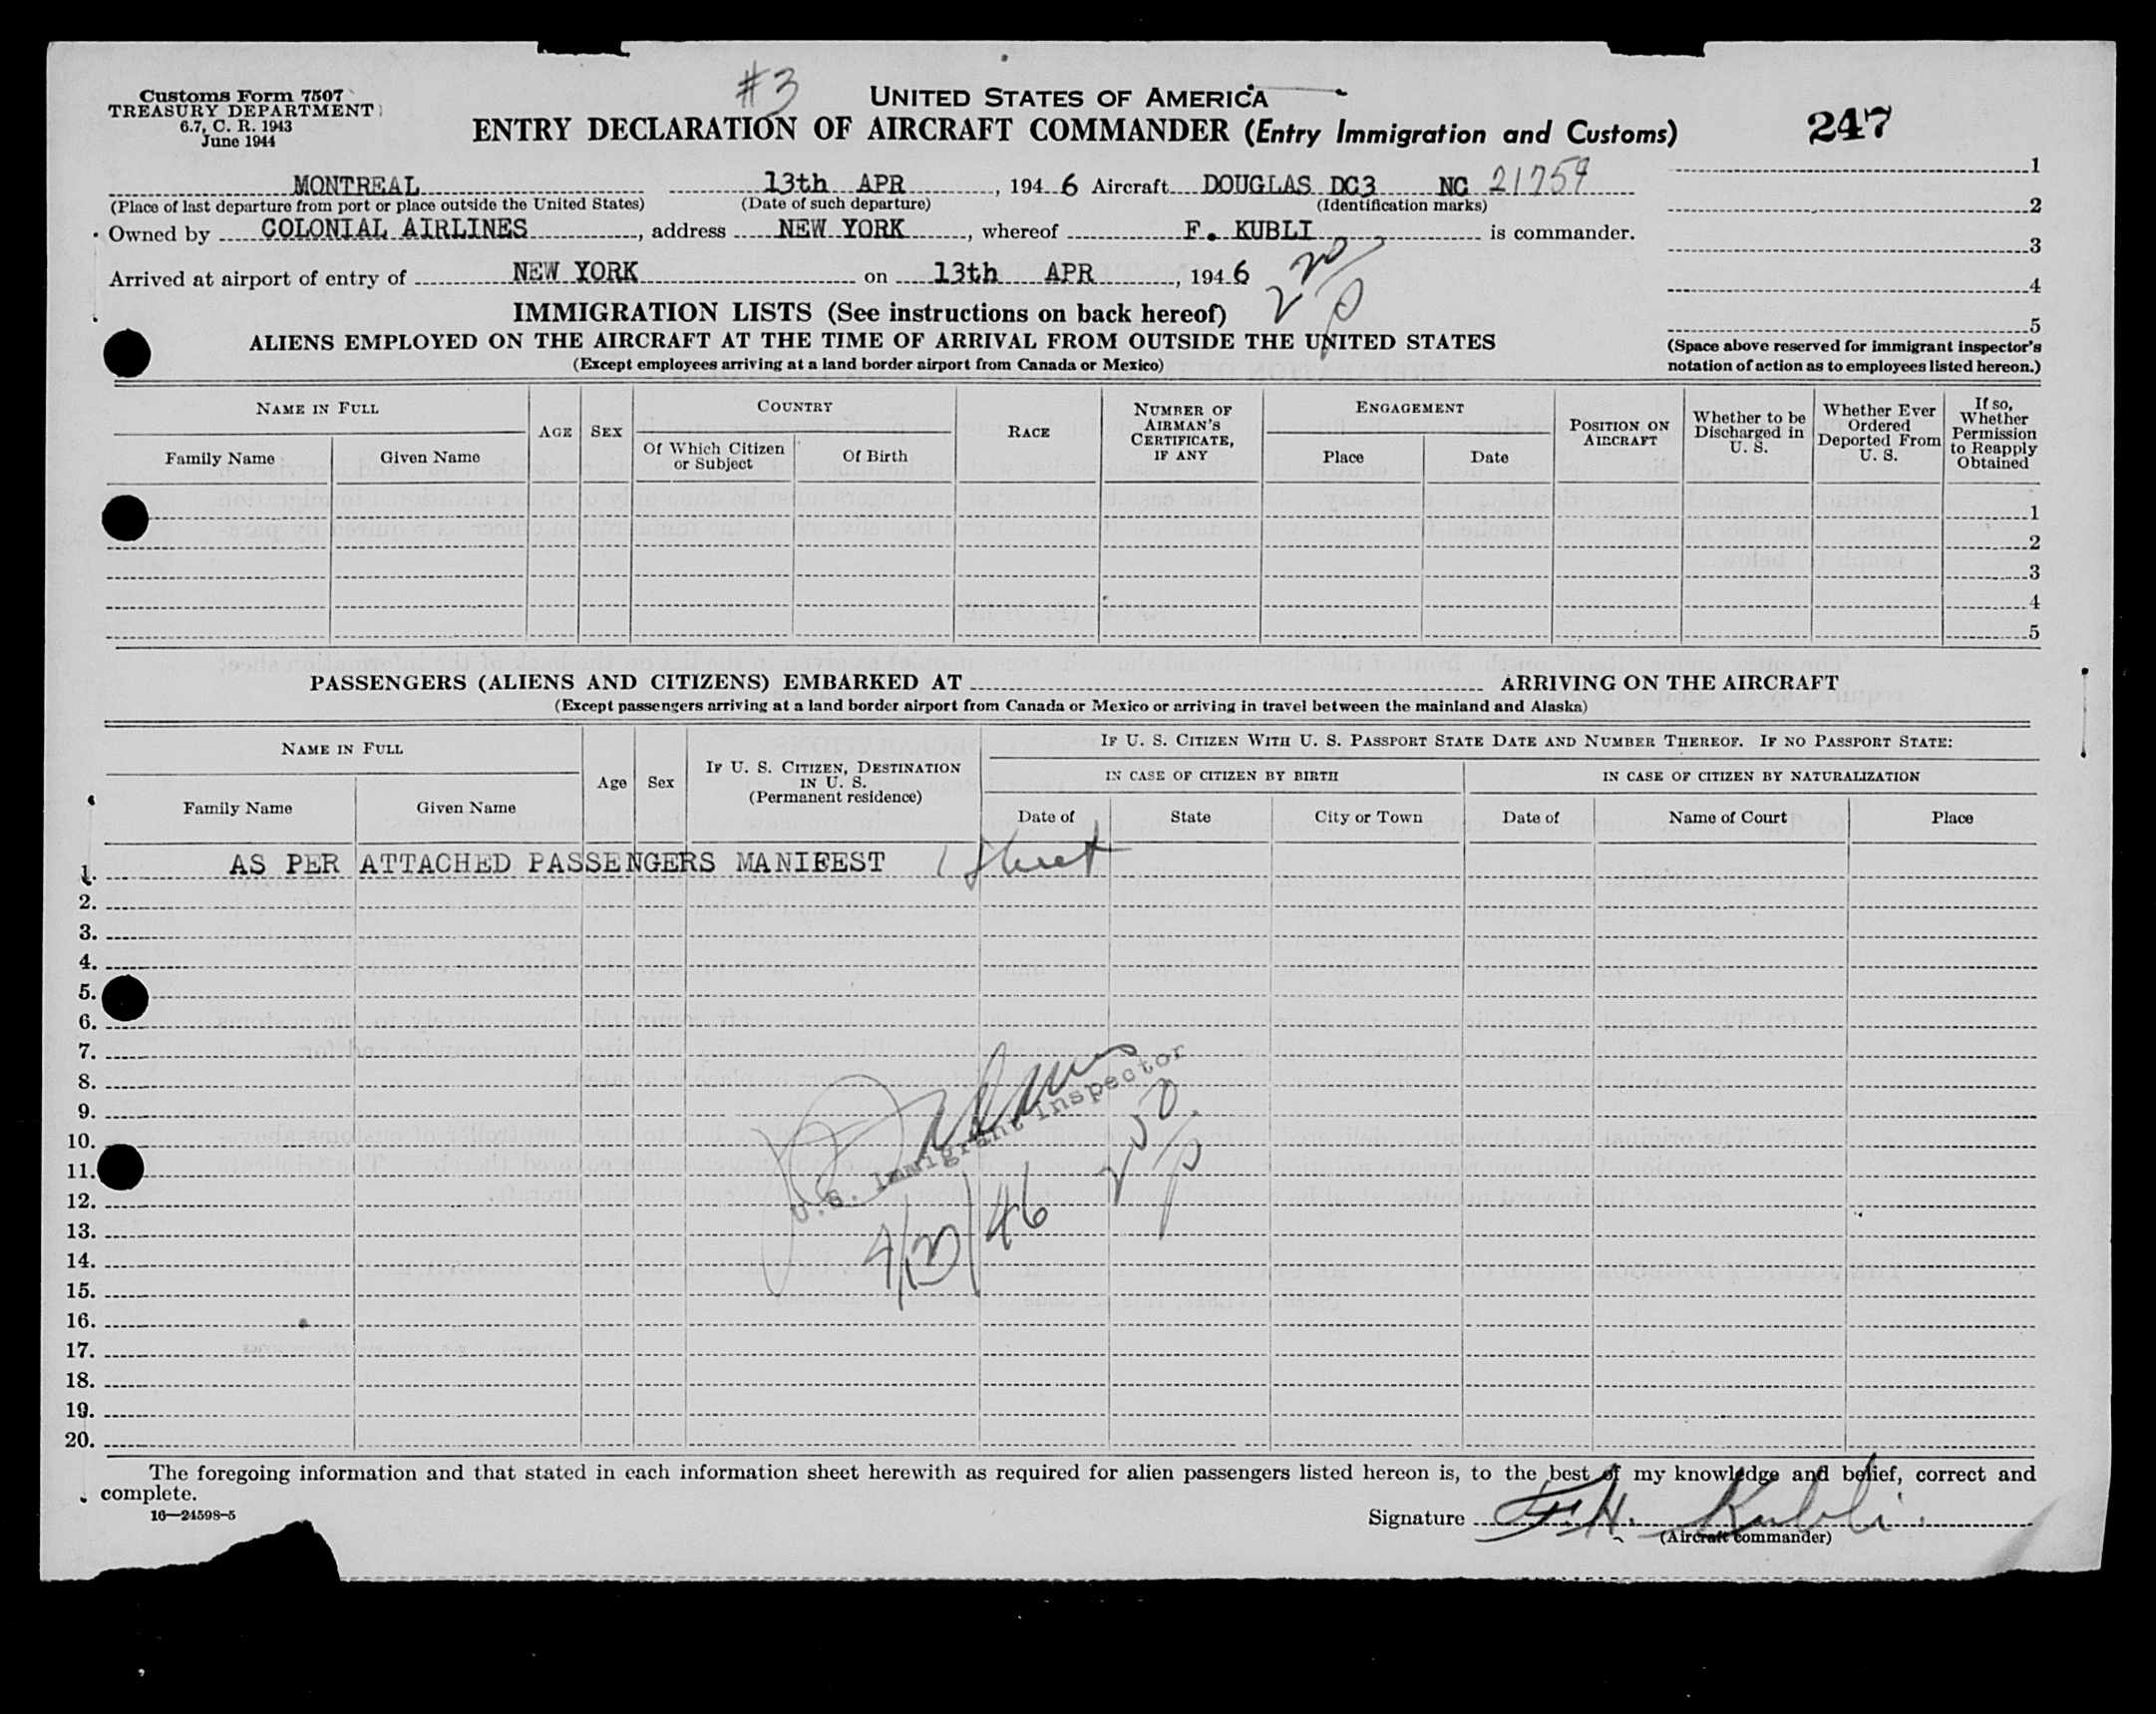 #3
Customs Form 7507
TREASURY DEPARTMENT
6.7, C. R. 1943
June 1944
UNITED STATES OF AMERICA
ENTRY DECLARATION OF AIRCRAFT COMMANDER (Entry Immigration and Customs)
247
MONTREAL 13th APR, 1946 Aircraft DOUGLAS DC3 NC 21759
(Place of last departure from port or place outside the United States) (Date of such departure) (Identification marks)
Owned by COLONIAL AIRLINES, address NEW YORK, whereof F. KUBLI is commander.
Arrived at airport of entry of NEW YORK on 13th APR, 1946
1
2
3
4
5
(Space above reserved for immigrant inspector's
notation of action as to employees listed hereon.)
IMMIGRATION LISTS (See instructions on back hereof)
ALIENS EMPLOYED ON THE AIRCRAFT AT THE TIME OF ARRIVAL FROM OUTSIDE THE UNITED STATES
(Except employees arriving at a land border airport from Canada or Mexico)
NAME IN FULL
Family Name
Given Name
AGE
SEX
COUNTRY
Of Which Citizen
or Subject
Of Birth
RACE
NUMBER OF
AIRMAN'S
CERTIFICATE,
IF ANY
ENGAGEMENT
Place
Date
POSITION ON
AIRCRAFT
Whether to be
Discharged in
U. S.
Whether Ever
Ordered
Deported From
U. S.
If so,
Whether
Permission
to Reapply
Obtained
1
2
3
4
5
PASSENGERS (ALIENS AND CITIZENS) EMBARKED AT ARRIVING ON THE AIRCRAFT
(Except passengers arriving at a land border airport from Canada or Mexico or arriving in travel between the mainland and Alaska)
NAME IN FULL
Family Name
Given Name
Age
Sex
IF U. S. CITIZEN, DESTINATION
IN U. S.
(Permanent residence)
IF U. S. CITIZEN WITH U. S. PASSPORT STATE DATE AND NUMBER THEREOF. IF NO PASSPORT STATE:
IN CASE OF CITIZEN BY BIRTH
IN CASE OF CITIZEN BY NATURALIZATION
Date of
State
City or Town
Date of
Name of Court
Place
1. AS PER ATTACHED PASSENGERS MANIFEST 1 Sheet
2.
3.
4.
5.
6.
7.
8.
9.
10.
11.
12.
13.
14.
15.
16.
17.
18.
19.
20.
U.S. Immigrant Inspector
4/13/46
The foregoing information and that stated in each information sheet herewith as required for alien passengers listed hereon is, to the best of my knowledge and belief, correct and
complete.
16—24598-5
Signature F.H. Kubli.
(Aircraft commander)